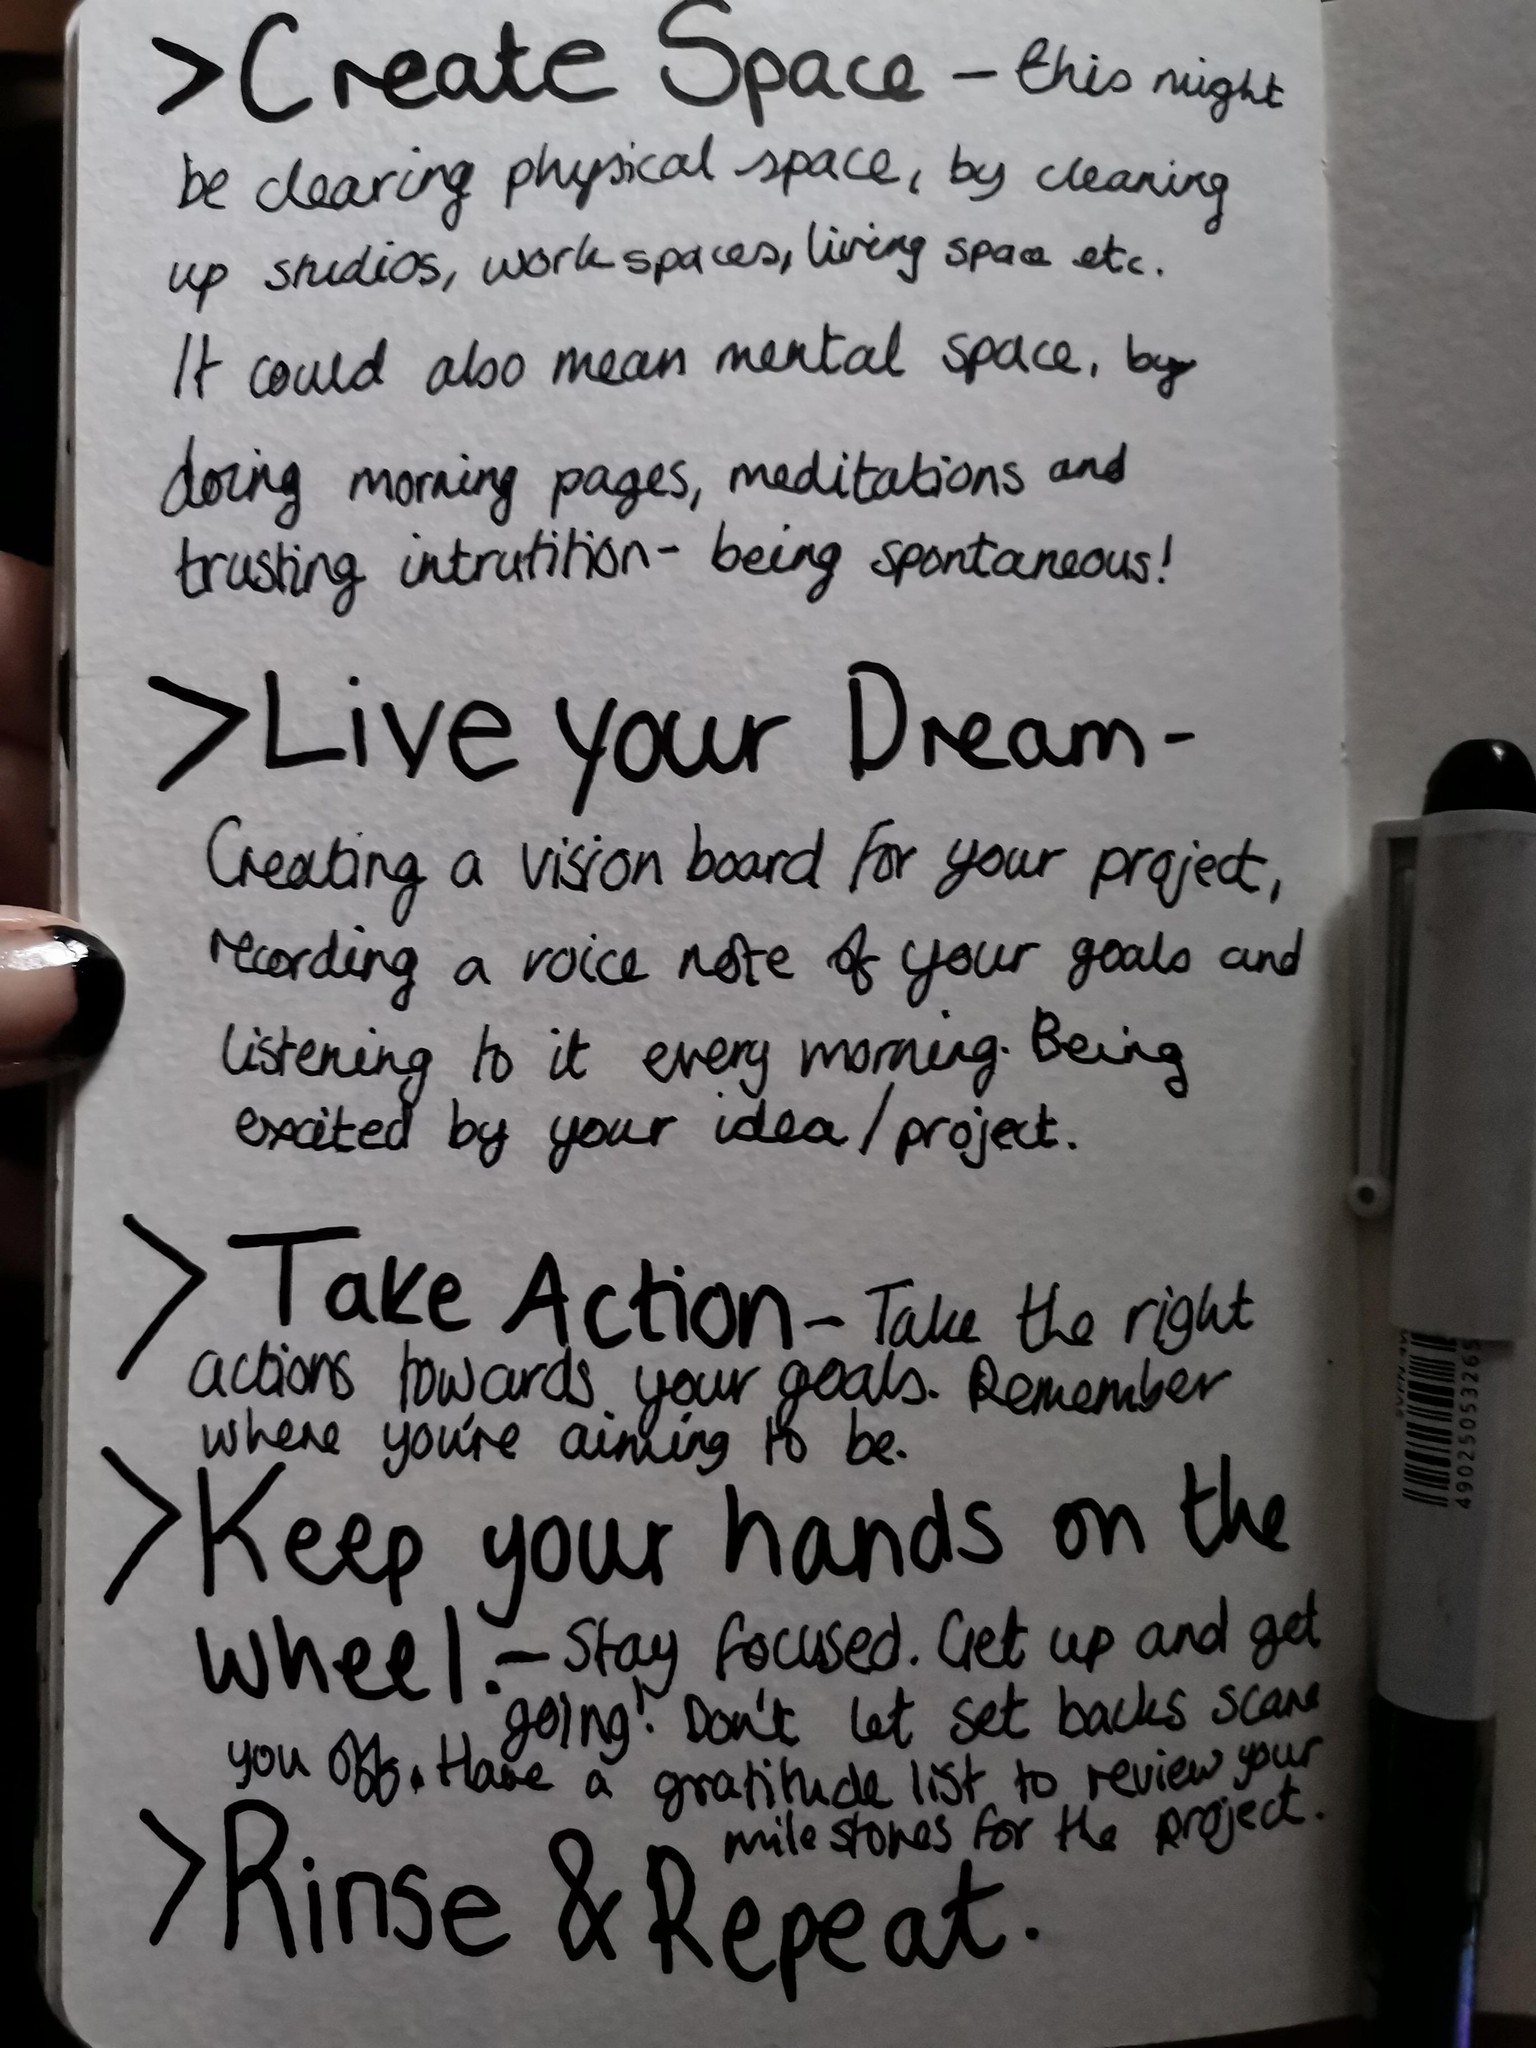 >Create Space – this might
be clearing physical space, by cleaning
up studios, work spaces, living space etc.
It could also mean mental space, by
doing morning pages, meditations and
trusting intrutition- being spontaneous!
>Live your Dream-
Creating a vision board for your project,
recording a voice note of your goals and
listening to it every morning. Being
excited by your idea/project.
>Take Action – Take the right
actions towards your goals. Remember
where you're aiming to be.
>Keep your hands on the
wheel. – Stay focused. Get up and get
going! Don't let set backs scare
you off. Have a gratitude list to review your
milestones for the project.
>Rinse & Repeat.
4902505053265